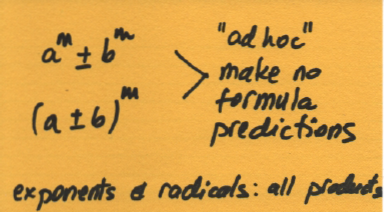 aᵐ ± bᵐ
(a ± b)ᵐ
"ad hoc"
make no
formula
predictions
exponents & radicals: all products